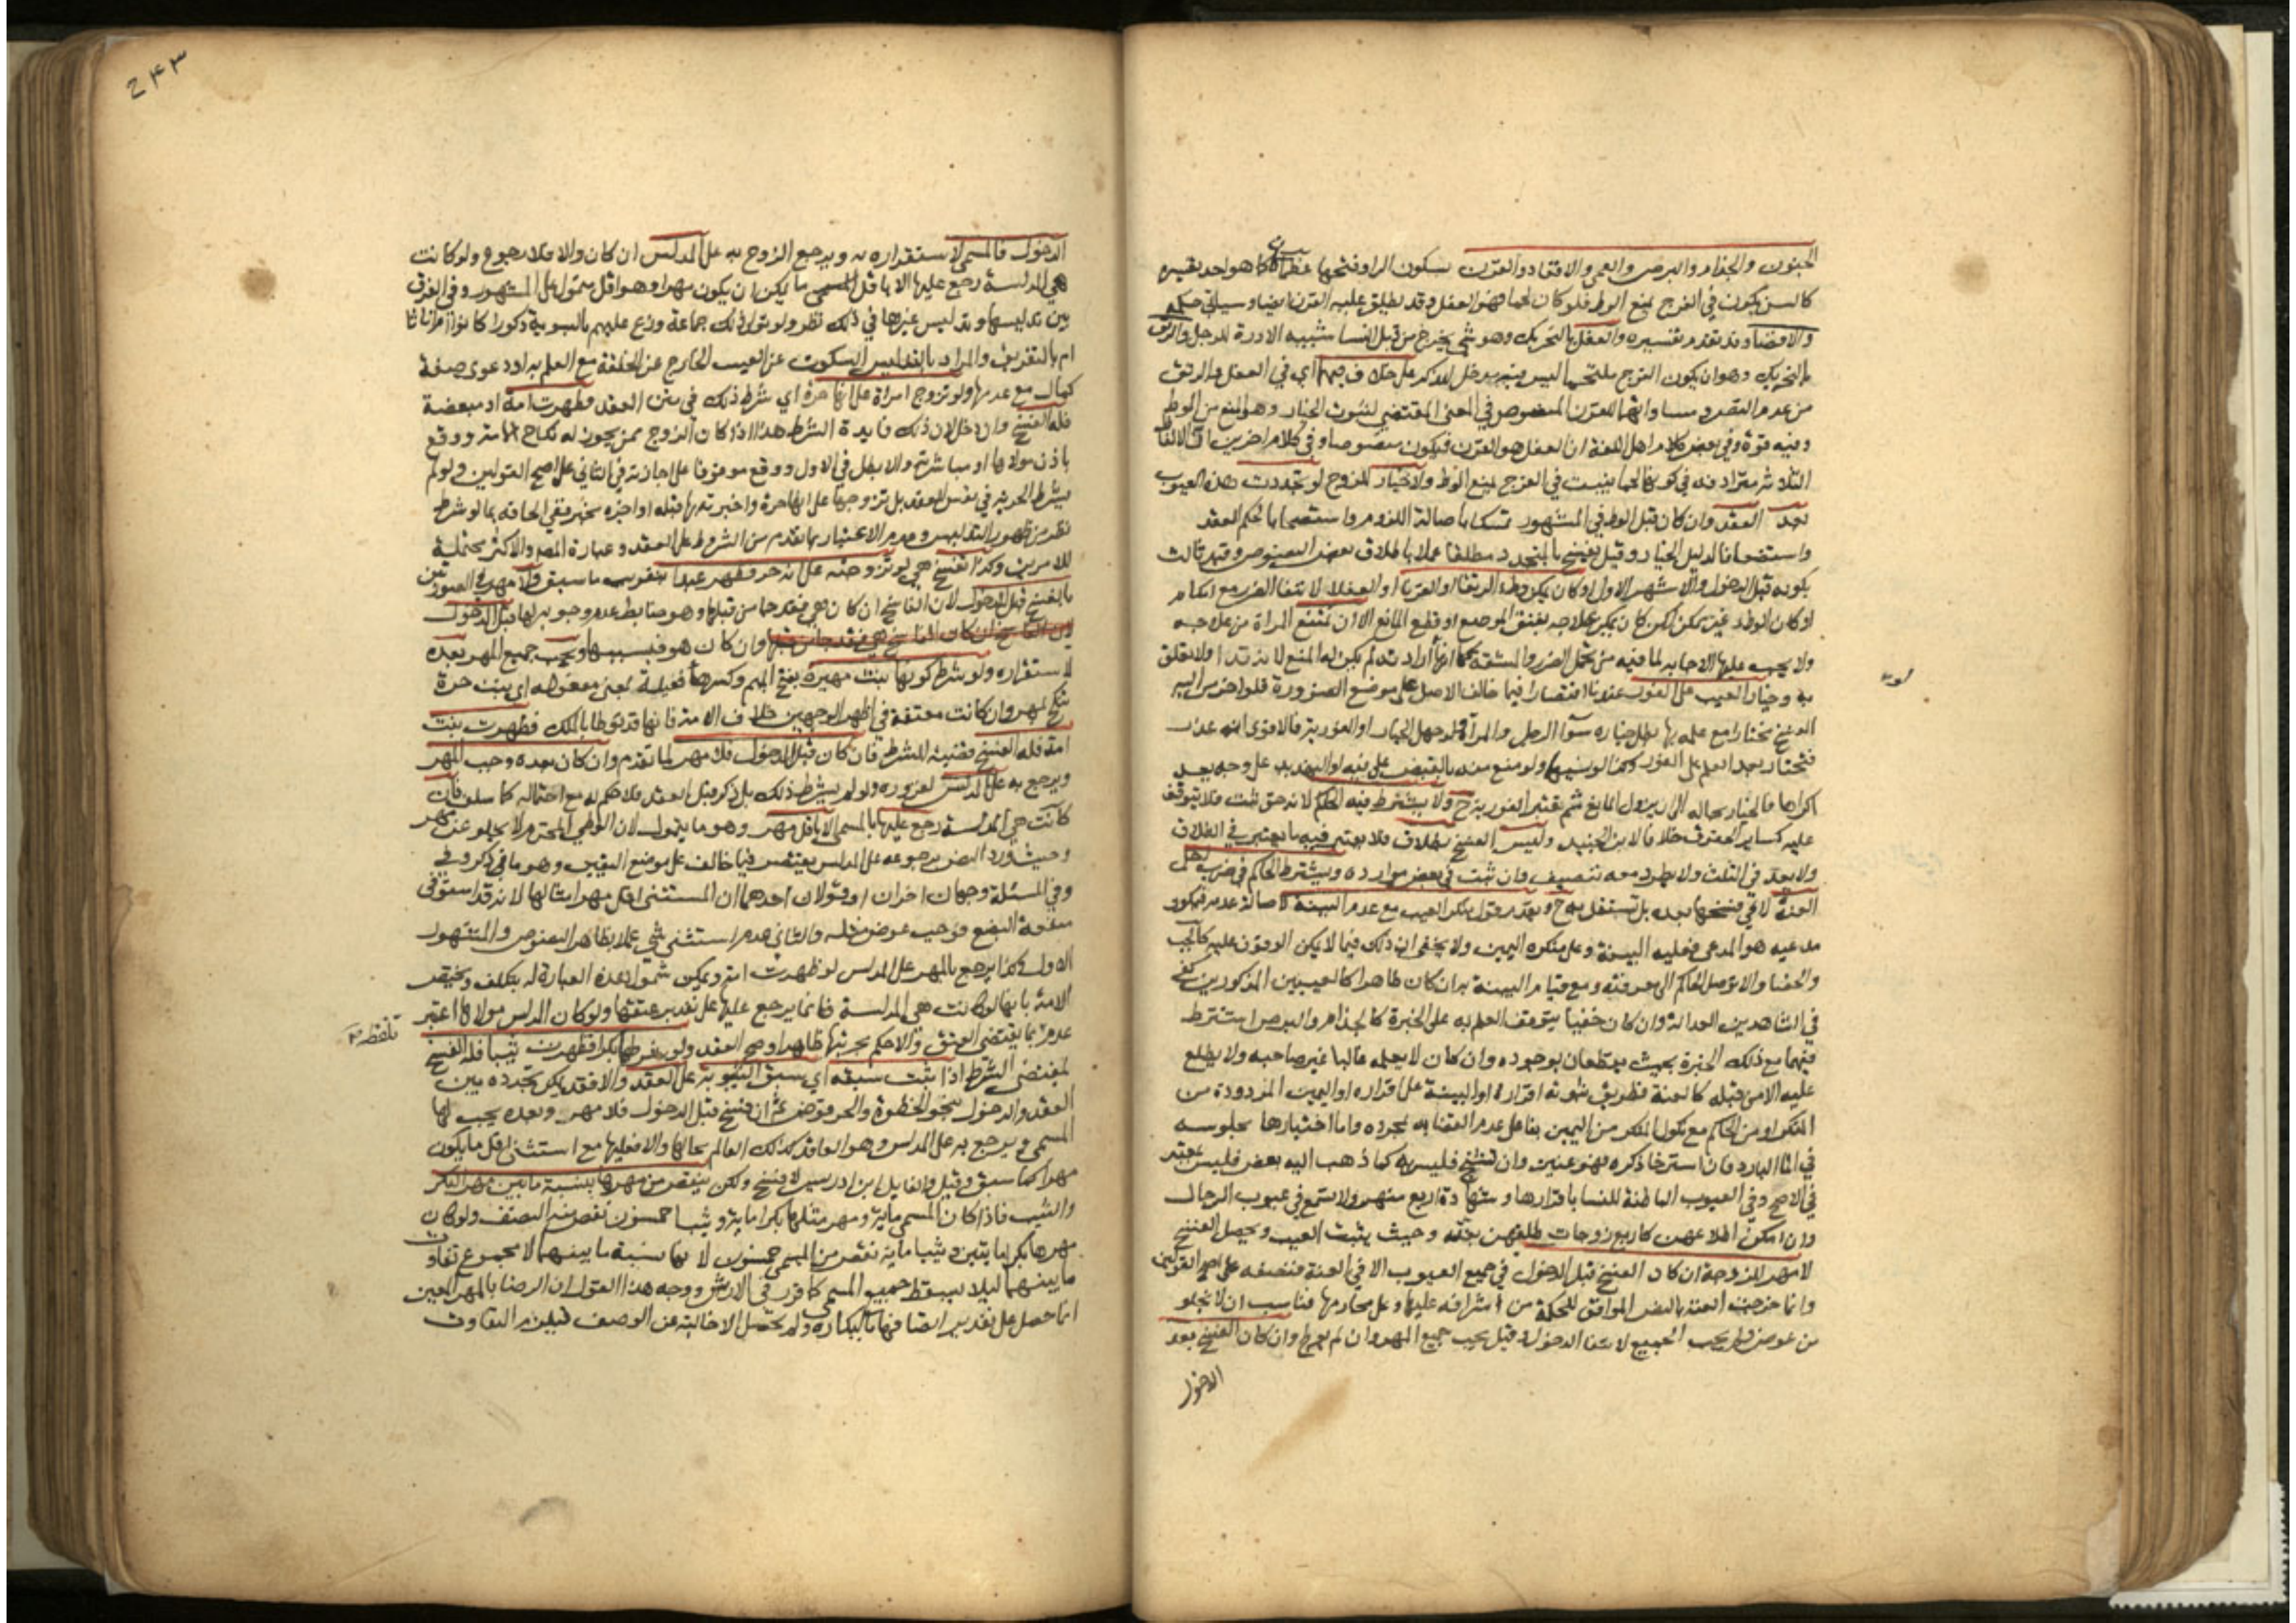 الجنون والجذام والبرص والعمى والاقعاد والقرن بسكون الراء وفتحها عظم كما هو احد تفسيريه
كالسن يكون في الفرج يمنع الوطء فلو كان لحما فهو العفل وقد يطلق عليه القرن ايضا وسياتي حكمه
والافضاء وقد تقدم تفسيره والعفل بالتحريك وهو شئ يخرج من قبل النساء شبيه الادرة للرجل والرتق
بالتحريك وهو ان يكون الفرج ملتحما ليس فيه مدخل للذكر على خلاف فيهما اي في العفل والرتق
من عدم النص ومساواتهما للقرن المنصوص في المعنى المقتضي لثبوت الخيار وهو المنع من الوطء
وفيه قوة وفي بعض كلام اهل اللغة ان العفل هو القرن فيكون منصوصا وفي كلام اخرين ان الالفاظ
الثلاثة مترادفة في كونها لحما ينبت في الفرج يمنع الوطء ولا خيار للزوج لو تجددت هذه العيوب
بعد العقد وان كان قبل الوطء في المشهور تمسكا باصالة اللزوم واستصحابا لحكم العقد
واستضعافا لدليل الخيار وقيل يفسخ بالمتجدد مطلقا عملا باطلاق بعض النصوص وقيد ثالث
بكونه قبل الدخول والاشهر الاول او كان يمكن وطء الرتقاء او القرناء او العفلاء لانتفاء الضرر مع امكانه
او كان الوطء غير ممكن لكن كان يمكن علاجه بفتق الموضع او قطع المانع الا ان تمتنع المراة من علاجه
ولا يجب عليها الاجابة لما فيه من تحمل الضرر والمشقة كما انها لو ارادت ذلك لم يكن له المنع لانه تداو لا تعلق
به وخيار العيب على الفور عندنا اقتصارا فيما خالف الاصل على موضع الضرورة فلو اخر من اليه
الفسخ مختارا مع علمه بها بطل خياره سواء الرجل والمراة ولو جهل الخيار او الفورية فالاقوى انه عذر
فيختار بعد العلم على الفور وكذا لو نسيهما ولو منع منه بالقبض على فيه او التهديد على وجه يعد
اكراها فالخيار بحاله الى ان يزول المانع ثم تعتبر الفورية ح ولا يشترط فيه الحكم لانه حق ثبت فلا يتوقف
عليه كساير الحقوق خلافا لابن الجنيد وليس الفسخ بطلاق فلا يعتبر فيه ما يعتبر في الطلاق
ولا يعد في الثلث ولا يطرد معه تنصيف وان ثبت في بعض موارده ويشترط الحاكم في ضرب اجل
العنة لا في فسخها بعده بل تستقل به ح ويقدم قول منكر العيب مع عدم البينة لاصالة عدمه فيكون
مدعيه هو المدعي فعليه البينة وعلى منكره اليمين ولا يخفى ان ذلك فيما لا يمكن الوقوف عليه كالجب
والخصاء والا توصل الحاكم الى معرفته ومع قيام البينة به ان كان ظاهرا كالعيبين المذكورين كفى
في الشاهدين العدالة وان كان خفيا يتوقف العلم به على الخبرة كالجذام والبرص اشترط
فيهما مع ذلك الخبرة بحيث يقطعان بوجوده وان كان لا يعلمه غالبا غير صاحبه ولا يطلع
عليه الا من قبله كالعنة فطريق ثبوته اقراره او البينة على اقراره او اليمين المردودة من
المنكر او من الحاكم مع نكول المنكر من اليمين بناء على عدم القضاء به بمجرده واما اختبارها بجلوسه
في الماء البارد فان استرخا ذكره فهو عنين وان تشنج فليس به كما ذهب اليه بعض فليس بمعتبر
في الاصح وفي العيوب الباطنة للنساء باقرارها وشهادة اربع منهن ولا تسمع في عيوب الرجال
وان امكن اطلاعهن كاربع زوجات طلقهن بعنة وحيث يثبت العيب ويحصل الفسخ
لا مهر للزوجة ان كان الفسخ قبل الدخول في جميع العيوب الا في العنة فنصفه على اصح القولين
وانما خرجت العنة بالنص الموافق للحكمة من اشرافه عليها وعلى محارمها فناسب ان لا يخلو
من عوض ولم يجب الجميع لانتفاء الدخول وقيل يجب جميع المهر وان لم يولج وان كان الفسخ بعد
الدخول
الدخول فالمسمى لاستقراره به ويرجع الزوج به على المدلس ان كان والا فلا رجوع ولو كانت
هي المدلسة رجع عليها الا باقل المسمى ما يمكن ان يكون مهرا وهو اقل متمول على المشهور وفي الفرق
بين تدليسها وتدليس غيرها في ذلك نظر ولو تولى ذلك جماعة وزع عليهم بالسوية ذكورا كانوا ام اناثا
ام بالتفريق والمراد بالتدليس السكوت عن العيب الخارج عن الخلقة مع العلم به او دعوى صفة
كمال مع عدمها ولو تزوج امراة على انها حرة اي شرط ذلك في متن العقد فظهرت امة او مبعضة
فله الفسخ وان دخل لان ذلك فايدة الشرط هذا اذا كان الزوج ممن يجوز له نكاح الامة ووقع
باذن مولاها او مباشرته والا بطل في الاول ووقع موقوفا على اجازته في الثاني على اصح القولين ولو لم
يشترط الحرية في نفس العقد بل تزوجها على انها حرة واخبرته بها قبله او اخبره مخبر ففي الحاقه بما لو شرط
نظر من ظهور التدليس وعدم الاعتبار بما تقدم من الشروط على العقد وعبارة المصر والاكثر محتملة
للامرين وكذا تفسخ هي لو تزوجته على انه حر فظهر عبدا بتقريب ما سبق ولا مهر في الصورتين
بالفسخ قبل الدخول لان الفاسخ ان كان هي فقد جاء من قبلها وهو ضابط عدم وجوبه لها قبل الدخول
لان الفاسخ ان كان الفاسخ هي فقد جاء من قبلها وان كان هو فبسببها ويجب جميع المهر بعده
لاستقراره ولو شرط كونها بنت مهيرة بفتح الميم وكسر الهاء فعيلة بمعنى مفعولة اي بنت حرة
تنكح بمهر وان كانت معتقة في اظهر الوجهين خلاف الامة فانها قد توطا بالملك فظهرت بنت
امة فله الفسخ قضية للشرط فان كان قبل الدخول فلا مهر لما تقدم وان كان بعده وجب المهر
ويرجع به على المدلس لغروره ولو لم يشترط ذلك بل ذكر قبل العقد فلا حكم له مع احتماله كما سلف فان
كانت هي المدلسة رجع عليها بالمسمى الا باقل مهر وهو ما يتمول لان الوطي المحترم لا يخلو عن مهر
وحيث ورد النص برجوعه على المدلس يقتصر فيما خالف على موضع اليقين وهو ما ذكر
وفي المسئلة وجهان اخران او قولان احدهما ان المستثنى اقل مهر امثالها لانه قد استوفى
منفعة البضع فوجب عوض مثله والثاني عدم استثنى شي عملا بظاهر النصوص والمشهور
الاول وكذا يرجع بالمهر على المدلس لو ظهرت امة ويمكن شمول هذه العبارة له بتكلف وتختص
الامة بانها لو كانت هي المدلسة فانما يرجع عليها على تقدير عتقها ولو كان المدلس مولاها اعتبر
عدم تلفظه بما يقتضي العتق والا حكم بحريتها ظاهرا وصح العقد ولو شرطها بكرا فظهرت ثيبا فله الفسخ
بمقتضى الشرط اذا ثبت سبقه اي سبق الثيوبة على العقد والا فقد يمكن تجدده بين
العقد والدخول بنحو الخطوة والحرقوص ثم ان فسخ قبل الدخول فلا مهر وبعده يجب لها
المسمى ويرجع به على المدلس وهو العاقد كذلك العالم بحالها والا فعليها مع استثنى اقل ما يكون
مهرا كما سبق وقيل والقايل ابن ادريس لا فسخ ولكن ينقص من مهرها بنسبة ما بين مهر البكر
والثيب فاذا كان المسمى ماية ومهر مثلها بكرا ماية وثيبا خمسون نقص منه النصف ولو كان
مهرها بكرا مايتين وثيبا ماية نقص من المسمى خمسون لانها نسبة ما بينهما لا مجموع تفاوت
ما بينهما لئلا يسقط جميع المسمى كما قرر في الارش ووجه هذا القول ان الرضا بالمهر المعين
انما حصل على تقدير اتصافها بالبكارة ولم تحصل الا خالية عن الوصف فيلزم التفاوت